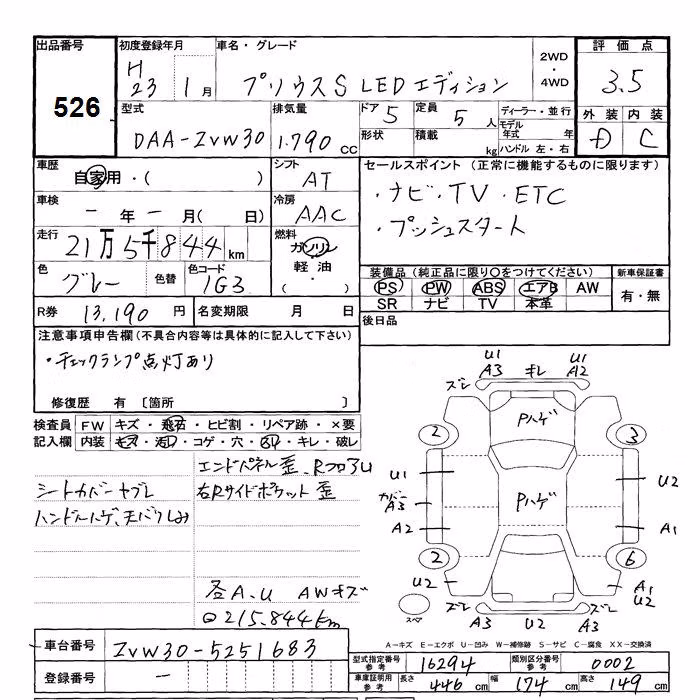 出品番号 初度登録年月 車名・グレード 2WD・4WD 評価点
526 H23 1月 プリウスS LEDエディション 3.5
型式 排気量 ドア 5 定員 5人 ディーラー・並行 外装 内装
DAA-ZVW30 1.790cc 形状 積載 kg モデル年式 年 D C
ハンドル 左・右
車歴 シフト セールスポイント (正常に機能するものに限ります)
自家用・( ) AT ・ナビ・TV・ETC
車検 冷房 ・プッシュスタート
ー年ー月(日) AAC
走行 燃料
21万5千844km ガソリン
軽油
・( )
色 色替 色コード 装備品 (純正品に限り○をつけてください) 新車保証書
グレー 1G3 PS PW ABS エアB AW 有・無
SR ナビ TV 本革
R券 13,190円 名変期限 月 日 後日品
注意事項申告欄(不具合内容等は具体的に記入して下さい)
・チェックランプ点灯あり
修復歴 有 〔箇所 〕
検査員 FW キズ・飛石・ヒビ割・リペア跡・×要
記入欄 内装 キズ・汚れ・コゲ・穴・スレ・キレ・破レ
エンドパネル歪、RフロアU
シートカバーヤブレ 右Rサイドポケット歪
ハンドルハゲ、天バリしみ
全A.U AWキズ
215.844km
U1 U1
ズレ A3 キレ A2 ズレ
Pハゲ
2 3
U1 U2
カバーA3 Pハゲ
A2 A1
2 6
U2 A1
U2
スペア ズレ A3 U2 A3 ズレ
A-キズ E-エクボ U-凹み W-補修跡 S-サビ C-腐食 XX-交換済
車台番号 ZVW30-5251683
登録番号 ー
型式指定番号 参考 16294 類別区分番号 参考 0002
車庫証明用 参考 長さ 446cm 幅 174cm 高さ 149cm